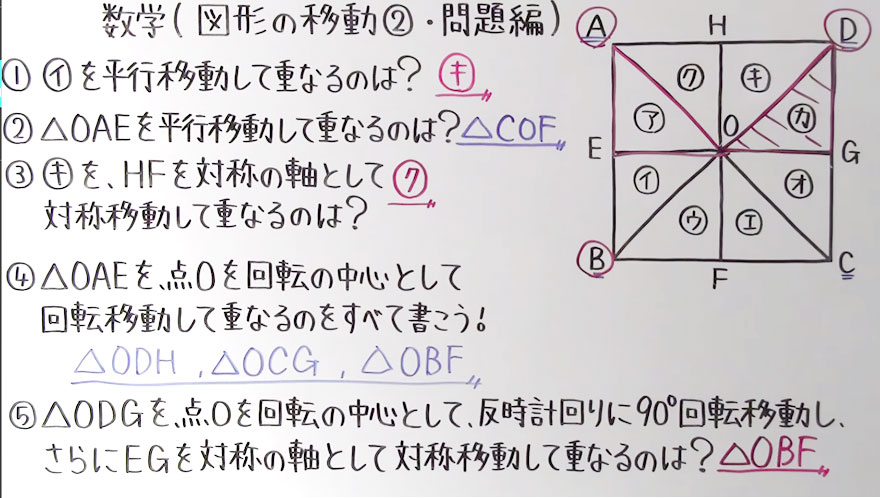 数学(図形の移動②・問題編)
① ㋑を平行移動して重なるのは? ㋖
② △OAEを平行移動して重なるのは? △COF
③ ㋖を、HFを対称の軸として
対称移動して重なるのは? ㋗
④ △OAEを、点Oを回転の中心として
回転移動して重なるのをすべて書こう!
△ODH , △OCG , △OBF
⑤ △ODGを、点Oを回転の中心として、反時計回りに90°回転移動し、
さらにEGを対称の軸として対称移動して重なるのは? △OBF
A H D
㋗ ㋖
㋐ O ㋕
E G
㋑ ㋔
㋒ ㋓
B F C